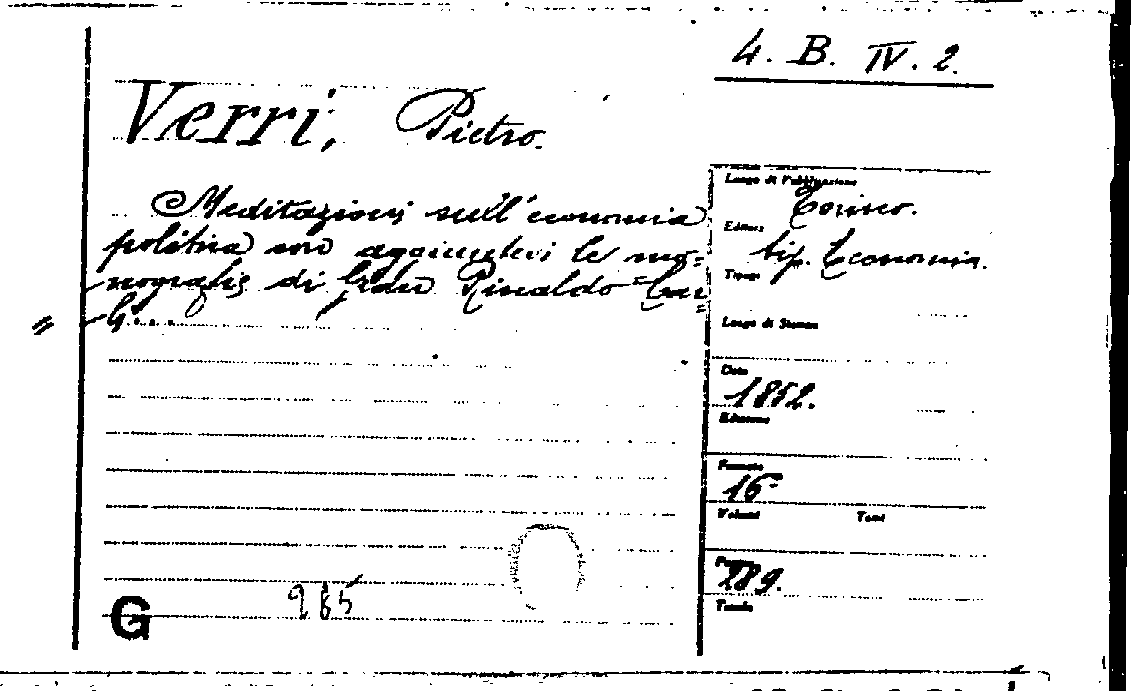 4. B. IV. 2.
Verri, Pietro.
Meditazioni sull'economia
politica con aggiuntevi le mo=
nografie di Rinaldo Car=
li...
Luogo di Pubblicazione
Torino.
Editore
tip. Economia.
Tipogr
Luogo di Stampa
Data
1852.
Edizione
Formato
16°
Volumi Tomi
289.
Tavole
G 285